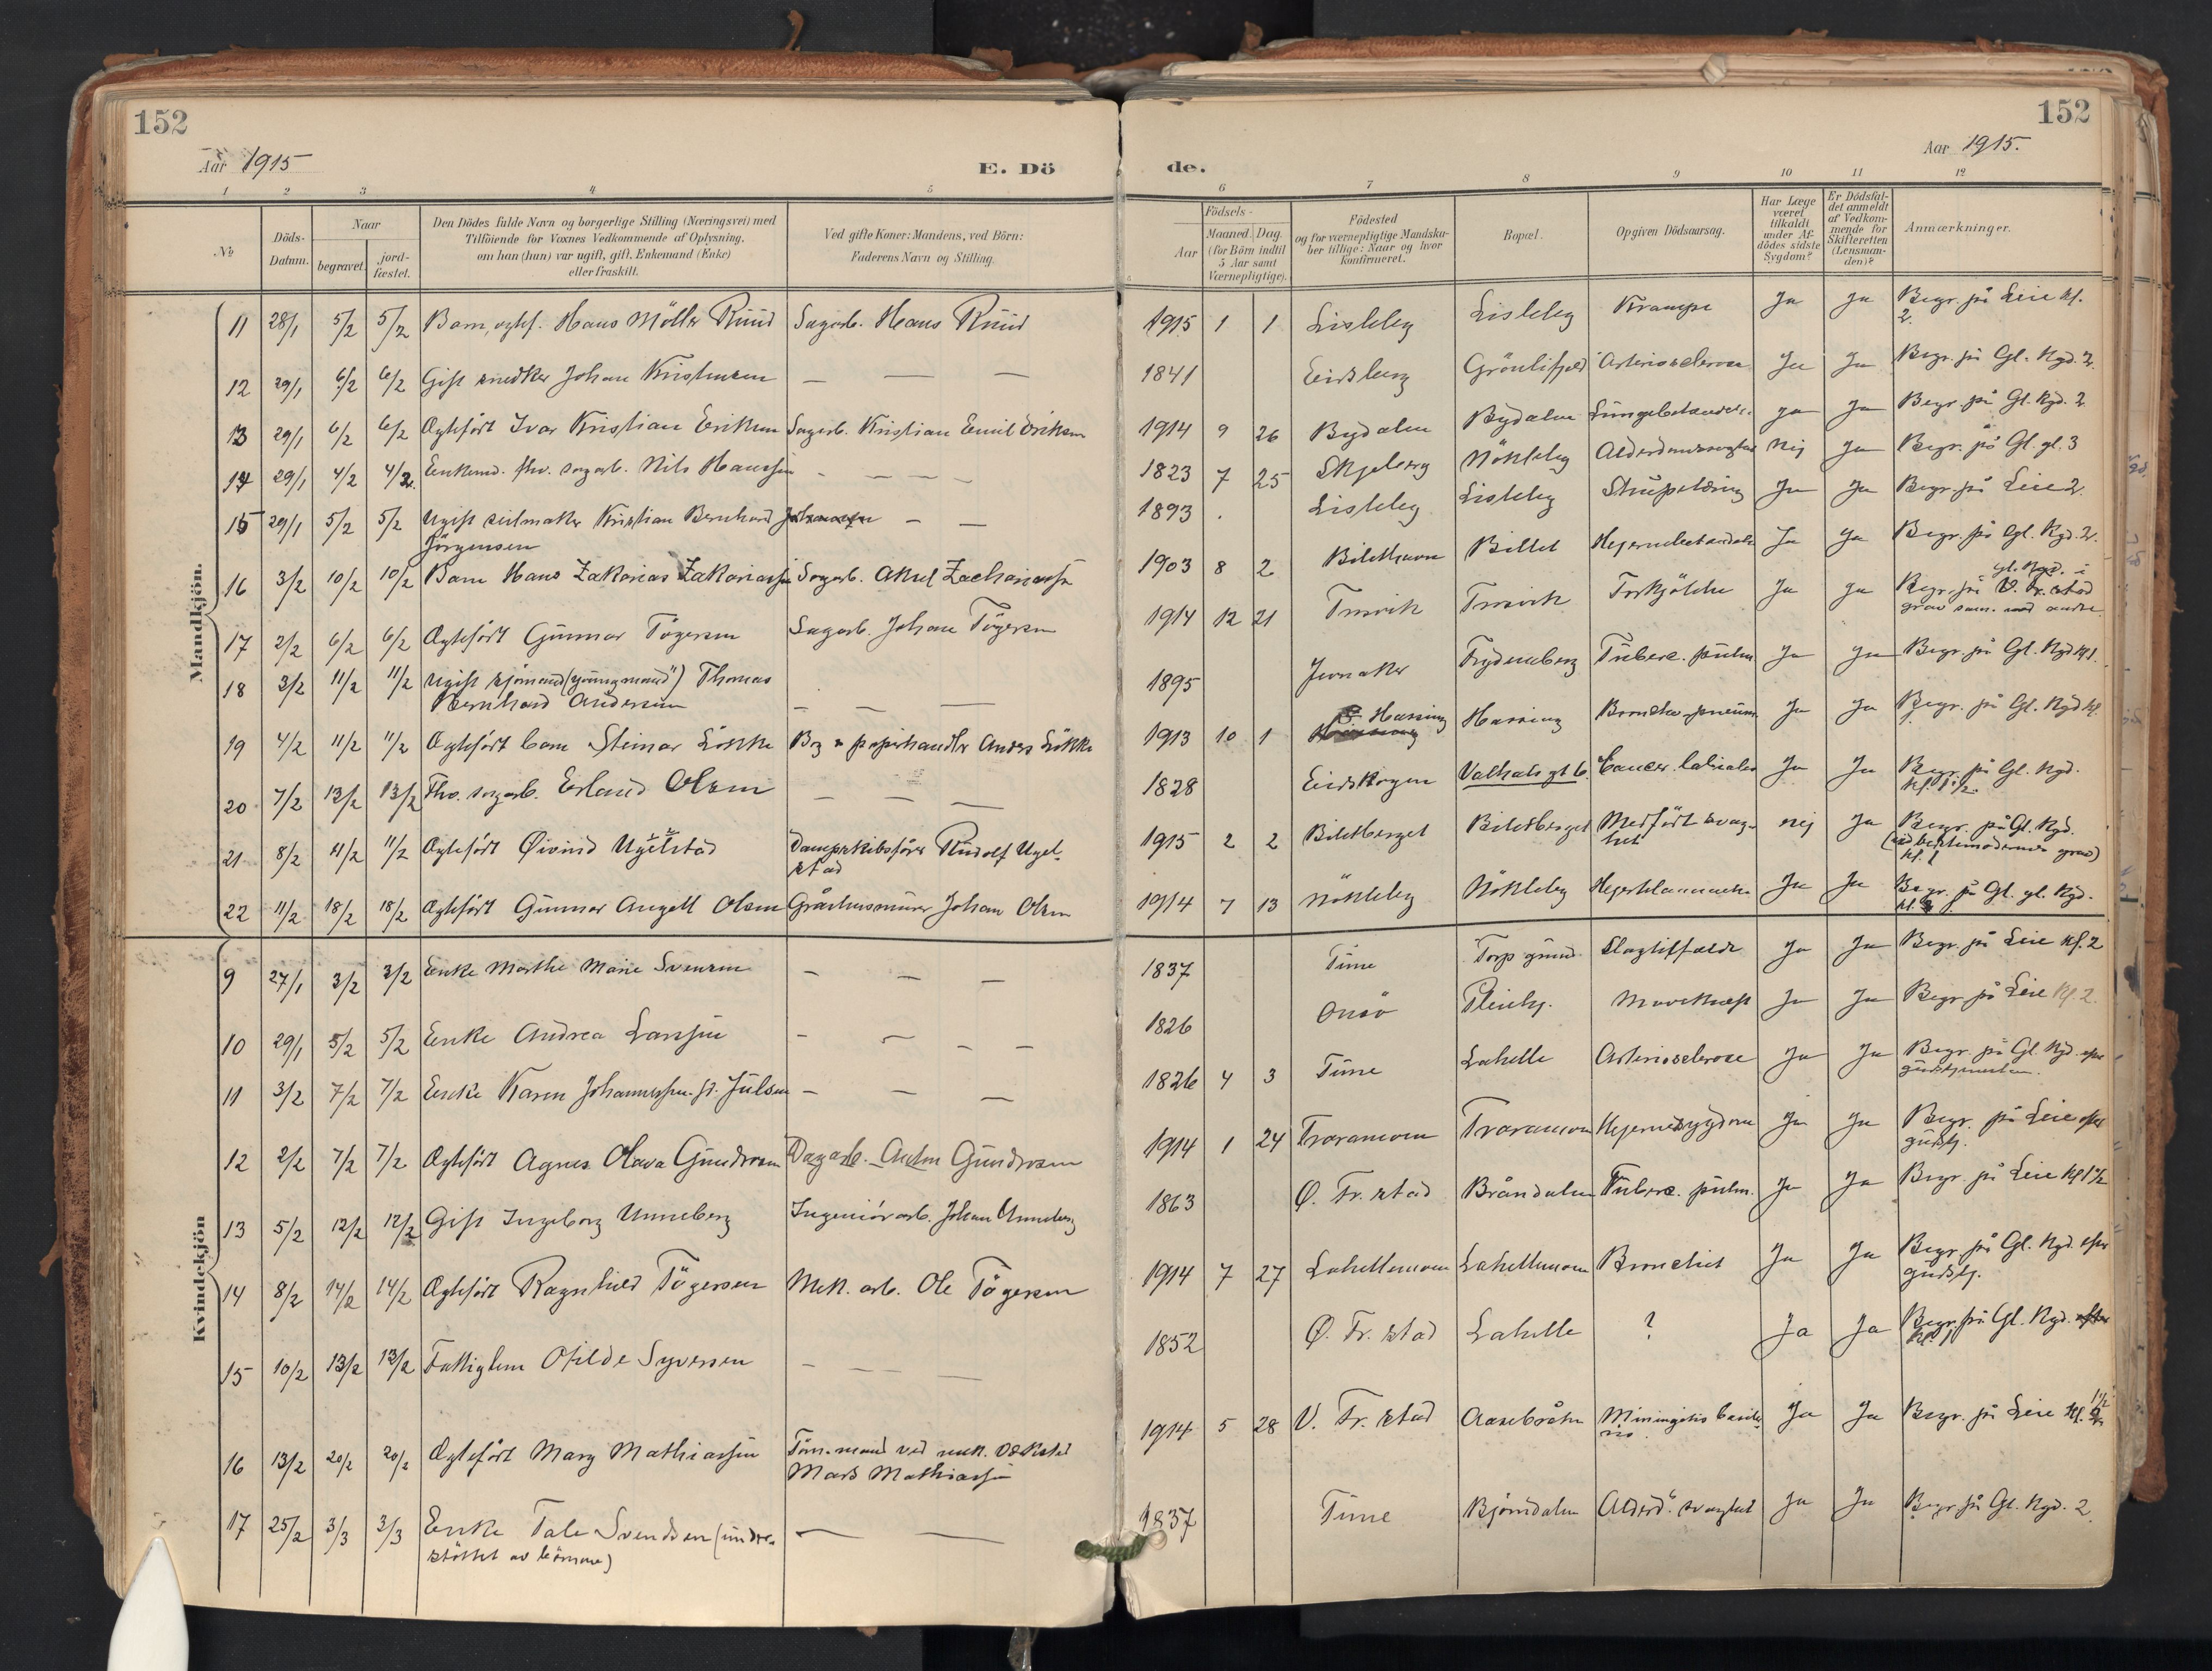 152
152
Aar 1915
E. Dö
de.
Aar 1915.
1 2 3 4 5 6 7 8 9 10 11 12
No
Döds-Datum.
Naar
begravet.
jord-fæstet.
Den Dödes fulde Navn og borgerlige Stilling (Næringsvei) med
Tilföiende for Voxnes Vedkommende af Oplysning,
om han (hun) var ugift, gift, Enkemand (Enke)
eller fraskilt.
Ved gifte Koner: Mandens, ved Börn:
Faderens Navn og Stilling.
Födsels-
Aar
Maaned. Dag.
(for Börn indtil
5 Aar samt
Værnepligtige).
Födested
og for værnepligtige Mandska-
ber tillige: Naar og hvor
konfirmeret.
Bopæl.
Opgiven Dödsaarsag.
Har Læge
været
tilkaldt
under Af-
dödes sidste
Sygdom?
Er Dödsfal-
det anmeldt
af Vedkom-
mende for
Skifteretten
(Lensman-
den)?
Anmærkninger.
Mandkjön.
11 28/1 5/2 5/2 Barn, egtef. Hans Möller Ruud Sagarb. Hans Ruud 1915 1 1 Lisleby Lisleby Krampe Ja Ja Begr. på Leie kl.
2.
12 29/1 6/2 6/2 Gift snedker Johan Kristensen — — — 1841 Eidsberg Grönlifjeld Arteriosclerose Ja Ja Begr. på Gl. Kgd. 2.
13 29/1 6/2 6/2 Ægtefödt Ivar Kristian Eriksen Sagarb. Kristian Emil Eriksen 1914 9 26 Bydalen Bydalen Lungebetændelse Ja Ja Begr. på Gl. Kgd. 2
14 29/1 4/2 4/2 Enkemd. fhv. sagarb. Nils Hanssen — — — — 1823 7 25 Skjeberg Nökleby Alderdomssvaghet Nej Ja Begr. på Gl. gl. 3
15 29/1 5/2 5/2 Ugift seilmaker Kristian Bernhard Johansen — —
Jörgensen
1893 Lisleby Lisleby Strupetæring Ja Ja Begr. på Leie 2.
16 3/2 10/2 10/2 Barn Hans Zakarias Zakariassen Sagarb. Aksel Zachariassen 1903 8 2 Bilethavn Billet Hjernebetændelse Ja Ja Begr. på Gl. Kgd. 2.
17 2/2 6/2 6/2 Ægtefödt Gunnar Tögersen Sagarb. Johan Tögersen 1914 12 21 Trosvik Trosvik Forkjölelse Ja Ja Begr. på gl. Kgd. i V. Fr.stad
grav sam. med andre
18 3/2 11/2 11/2 Ugift sjömand ("youngmand") Thomas
Bernhard Andersen — — —
1895 Jevnaker Frydenberg Tuberc. pulm. Ja Ja Begr. på Gl. Kgd kl 1.
19 4/2 11/2 11/2 Ægtefödt barn Steinar Lökke Bog & papirhandler Anders Lökke 1913 10 1 Hassing Hassing Broncho-pneum. Ja Ja Begr. på Gl. Kgd kl.
20 7/2 13/2 13/2 Fhv. sagarb. Erland Olsen — — — 1828 Eidskogen Valhals gt 6. Cancer. labialis Ja Ja Begr. på Gl. Kgd.
21 8/2 11/2 11/2 Ægtefödt Øivind Ugelstad Dampskibsförer Rudolf Ugel-
stad
1915 2 2 Biletberget Biletberget Medfödt svag-
het
nej Ja Begr. på Gl. Kgd.
(ved bestemoderens grav)
kl. 1
22 11/2 18/2 18/2 Ægtefödt Gunnar Angell Olsen Gråstensmurer Johan Olsen 1914 7 13 Nökleby Nökleby Ja Ja Begr. på Gl. gl. Kgd.
Kvindekjön
9 27/1 3/2 3/2 Enke Marthe Marie Svensen — — — 1837 Tune Torp grund Slagtilfælde Ja Ja Begr. på Leie kl. 2
10 29/1 5/2 5/2 Enke Andrea Larssen — — — — 1826 Onsö Pleiehj. Mavekræft Ja Ja Begr. på Leie kl. 2.
11 3/2 7/2 7/2 Enke Karen Johannessen. f. Julsen — — — 1826 4 3 Tune Lahelle Arteriosclerose Ja Ja Begr. på Gl. Kgd. efter
gudstjenesten.
12 2/2 7/2 7/2 Ægtefödt Agnes Olava Gundersen Dagarb. Anton Gundersen 1914 1 24 Traramoen Traramoen Hjernesygdom Ja Ja Begr. på Leie efter
gudstj.
13 5/2 12/2 12/2 Gift Ingeborg Unneberg Ingeniörarb. Johan Unneberg 1863 Ø. Fr. stad Brandalen Tuberc. pulm. Ja Ja Begr. på Leie kl 1 1/2
14 8/2 14/2 14/2 Ægtefödt Ragnhild Tögersen Mek. arb. Ole Tögersen 1914 7 27 Lahellemoen Lahellemoen Bronchit Ja Ja Begr. på Gl. Kgd. efter
gudstj.
15 10/2 13/2 13/2 Fattiglem Otilde Syversen — — — 1852 Ø. Fr. stad Lahelle ? Ja Ja Begr. på Gl. Kgd. efter
kl. 1
16 13/2 20/2 20/2 Ægtefödt Mary Mathiassen Töm.mand ved mek. Værksted
Mads Mathiassen
1914 5 28 V. Fr. stad Aasebråten Ja Ja Begr. på Leie kl. 1 1/2
17 25/2 3/3 3/3 Enke Tale Svendsen (under-
stöttet av börnene) — —
1837 Tune Bjørndalen Alderd. svaghet Ja Ja Begr. på Gl. Kgd. 2.